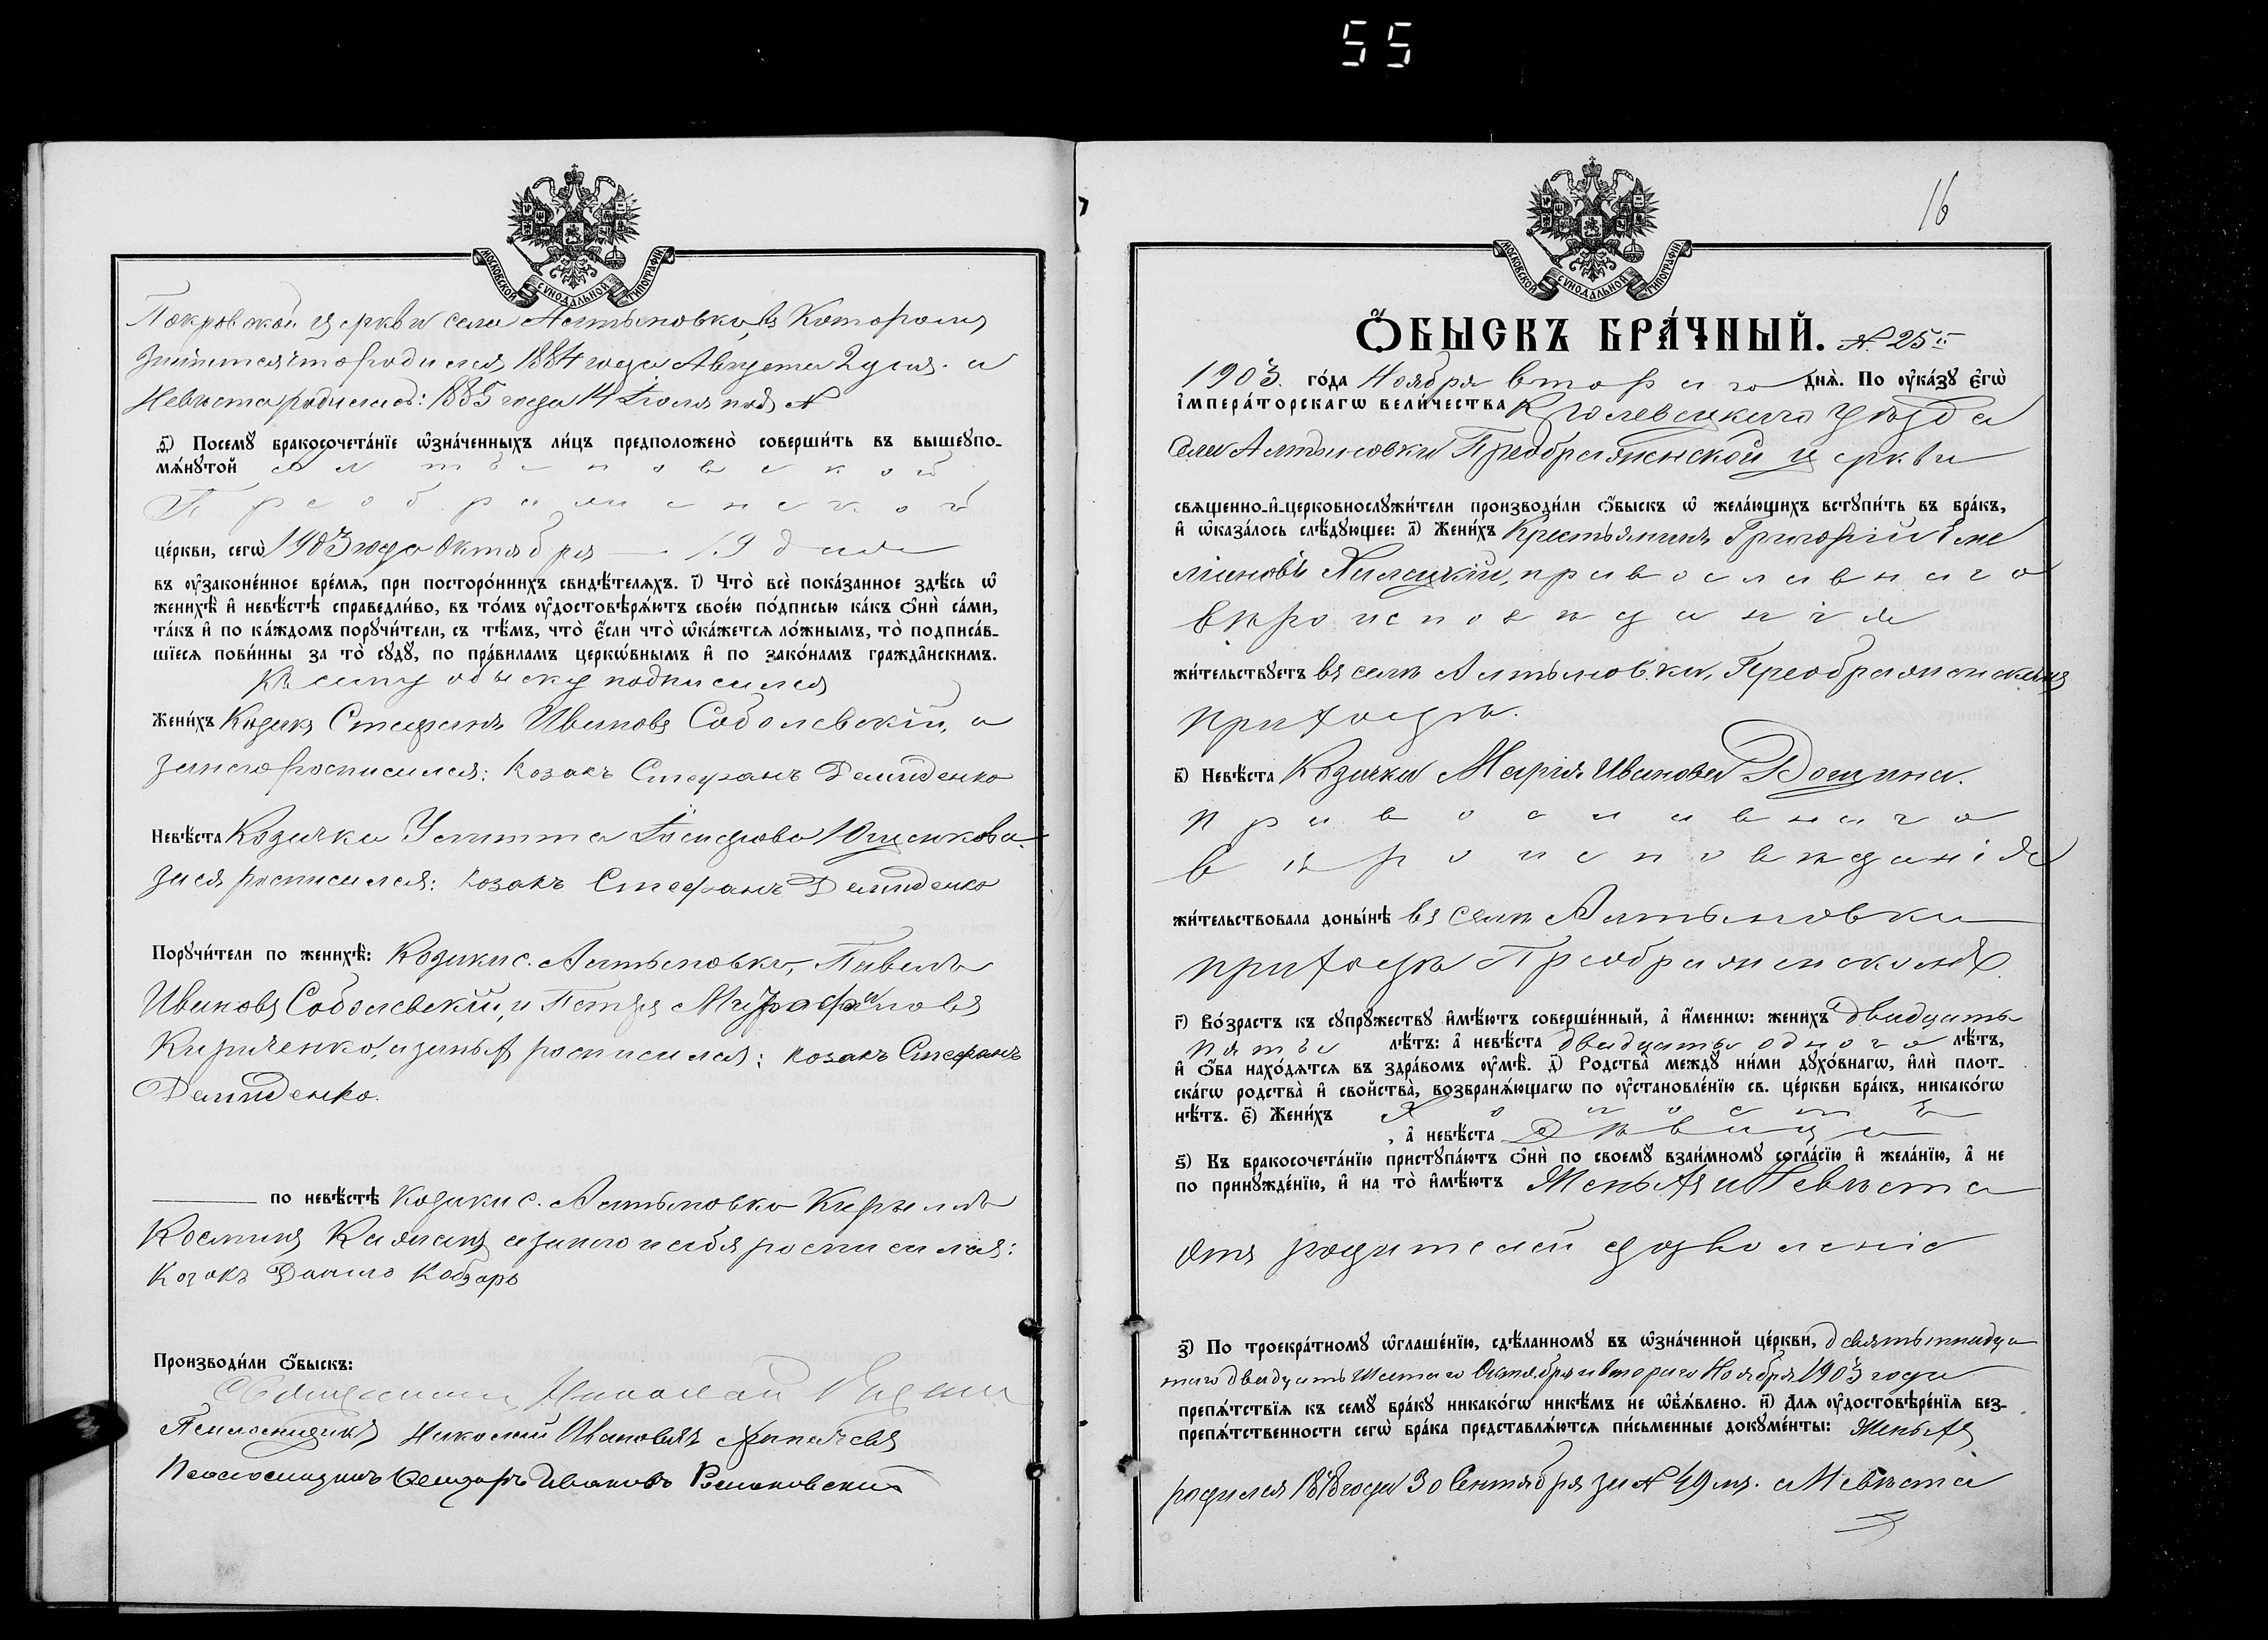 55
МОСКОВСКОЙ СУНОДАЛЬНОЙ ТИПОГРАФІИ
Покровской церкви села Алтыновки, въ Которомъ
значится что родился 1884 года Августа 2 дня. а
Невѣста родилась: 1885 года 14 Іюля подъ №
Посемꙋ̀ бракосочета́нїе ѡ҆зна́ченныхъ ли́цъ предположено̀ соверши́ть въ вышеꙋпо-
мѧ́нꙋтой Алтыновской
Преображенской
це́ркви, сегѡ̀ 1903 года Октября — 19 дня
въ ᲂу҆законе́нное вре́мѧ, при посторо́ннихъ свидѣ́телѧхъ. і҃) Что̀ всѐ пока́занное здѣ́сь ѡ҆
женихѣ̀ и҆ невѣ́стѣ справедли́во, въ то́мъ ᲂу҆достовѣрѧ́ютъ свое́ю по́дписью ка́къ ѻ҆нѝ са́ми,
та́къ и҆ по ка́ждомъ порꙋчи́тели, съ тѣ́мъ, что̀ є҆́сли что̀ ѡ҆ка́жетсѧ ло́жнымъ, то̀ подписа́в-
шїесѧ пови́нны за то̀ сꙋдꙋ̀, по пра́виламъ церкѡ́внымъ и҆ по зако́намъ гражда̑нскимъ.
Къ сему обыску подписался
Жени́хъ Козакъ Стефанъ Ивановъ Соболевскій, а
за него росписался: Козакъ Стефанъ Демиденко
Невѣ́ста Козачка Іосифова Ющенкова.
за ся росписался: козакъ Стефанъ Демиденко
Порꙋчи́тели по женихѣ̀: Козаки с. Алтыновки, Павелъ
Ивановъ Соболевскій, и Петръ Митрофановъ
Кириченко, а за нихъ росписался: козакъ Стефанъ
Демиденко.
по невѣ́стѣ Козаки с. Алтыновки Кирилъ
Косминъ а за него и себя росписался:
Козакъ Данило Кобзарь
Производи́ли ѻ҆́быскъ:
Священникъ Николай
Псаломщикъ Николай Ивановъ
Псаломщикъ Ивановъ
16
МОСКОВСКОЙ СУНОДАЛЬНОЙ ТИПОГРАФІИ
Ѻ҆́БЫСКЪ БРА́ЧНЫЙ. № 25й
1903. го́да Ноября втораго днѧ̀. По ᲂу҆ка́зꙋ є҆гѡ̀
і҆мпера́торскагѡ вели́чества Кролевецкаго уѣзда
села Алтыновки Преображенской церкви
свѧщенно-и҆-церковнослꙋжи́тели производи́ли ѻ҆́быскъ ѡ҆ жела́ющихъ встꙋпи́ть въ бра́къ,
и҆ ѡ҆каза́лось слѣ́дꙋющее: а҃) Жени́хъ Крестьянинъ Григорій Еме
ліановъ православнаго
вѣроисповѣданія
жи́тельствꙋетъ въ селѣ Алтыновки, Преображенскомъ
приходѣ.
в҃) Невѣ́ста Козачка Марія Иванова
православнаго
вѣроисповѣданія
жи́тельствовала доны́нѣ въ селѣ Алтыновки
приходѣ Преображенскомъ.
г҃) Во́зрастъ къ сꙋпрꙋ́жествꙋ и҆мѣ́ютъ соверше́нный, а҆ и҆́меннѡ: жени́хъ двадцать
пять лѣ́тъ: а҆ невѣ́ста двадцать одного лѣ́тъ,
и҆ ѻ҆́ба нахо́дѧтсѧ въ здра́вомъ ᲂу҆мѣ̀. д҃) Родства̀ междꙋ ни́ми дꙋхо́внагѡ, и҆лѝ плот-
ска́гѡ родства̀ и҆ сво́йства̀, возбранѧ́ющагѡ по ᲂу҆становле́нїю св. це́ркви бра́къ, никако́гѡ
нѣ́тъ. є҃) Жени́хъ Холостъ
, а҆ невѣ́ста Дѣвица
ѕ҃) Къ бракосочета́нїю пристꙋпа́ютъ ѻ҆нѝ по своемꙋ̀ взаи́мномꙋ согла́сїю и҆ жела́нїю, а҆ не
по принꙋжде́нїю, и҆ на то̀ и҆мѣ́ютъ Женихъ и Невѣста
отъ родителей дозволеніе
з҃) По троекра́тномꙋ ѡ҆глаше́нїю, сдѣ́ланномꙋ въ ѡ҆зна́ченной це́ркви, девятьнадца
таго двадцать шестаго Октября и втораго Ноября 1903 года
препѧ́тствїѧ къ семꙋ̀ бра́кꙋ никако́гѡ никѣ́мъ не ѡ҆б̾ѧ́влено. и҃) Длѧ ᲂу҆достовѣре́нїѧ без-
препѧ́тственности сегѡ̀ бра́ка представлѧ́ютсѧ пи́сьменные докꙋме́нты: Женихъ
родился года 30 Сентября за № 49 мъ. а Невѣста